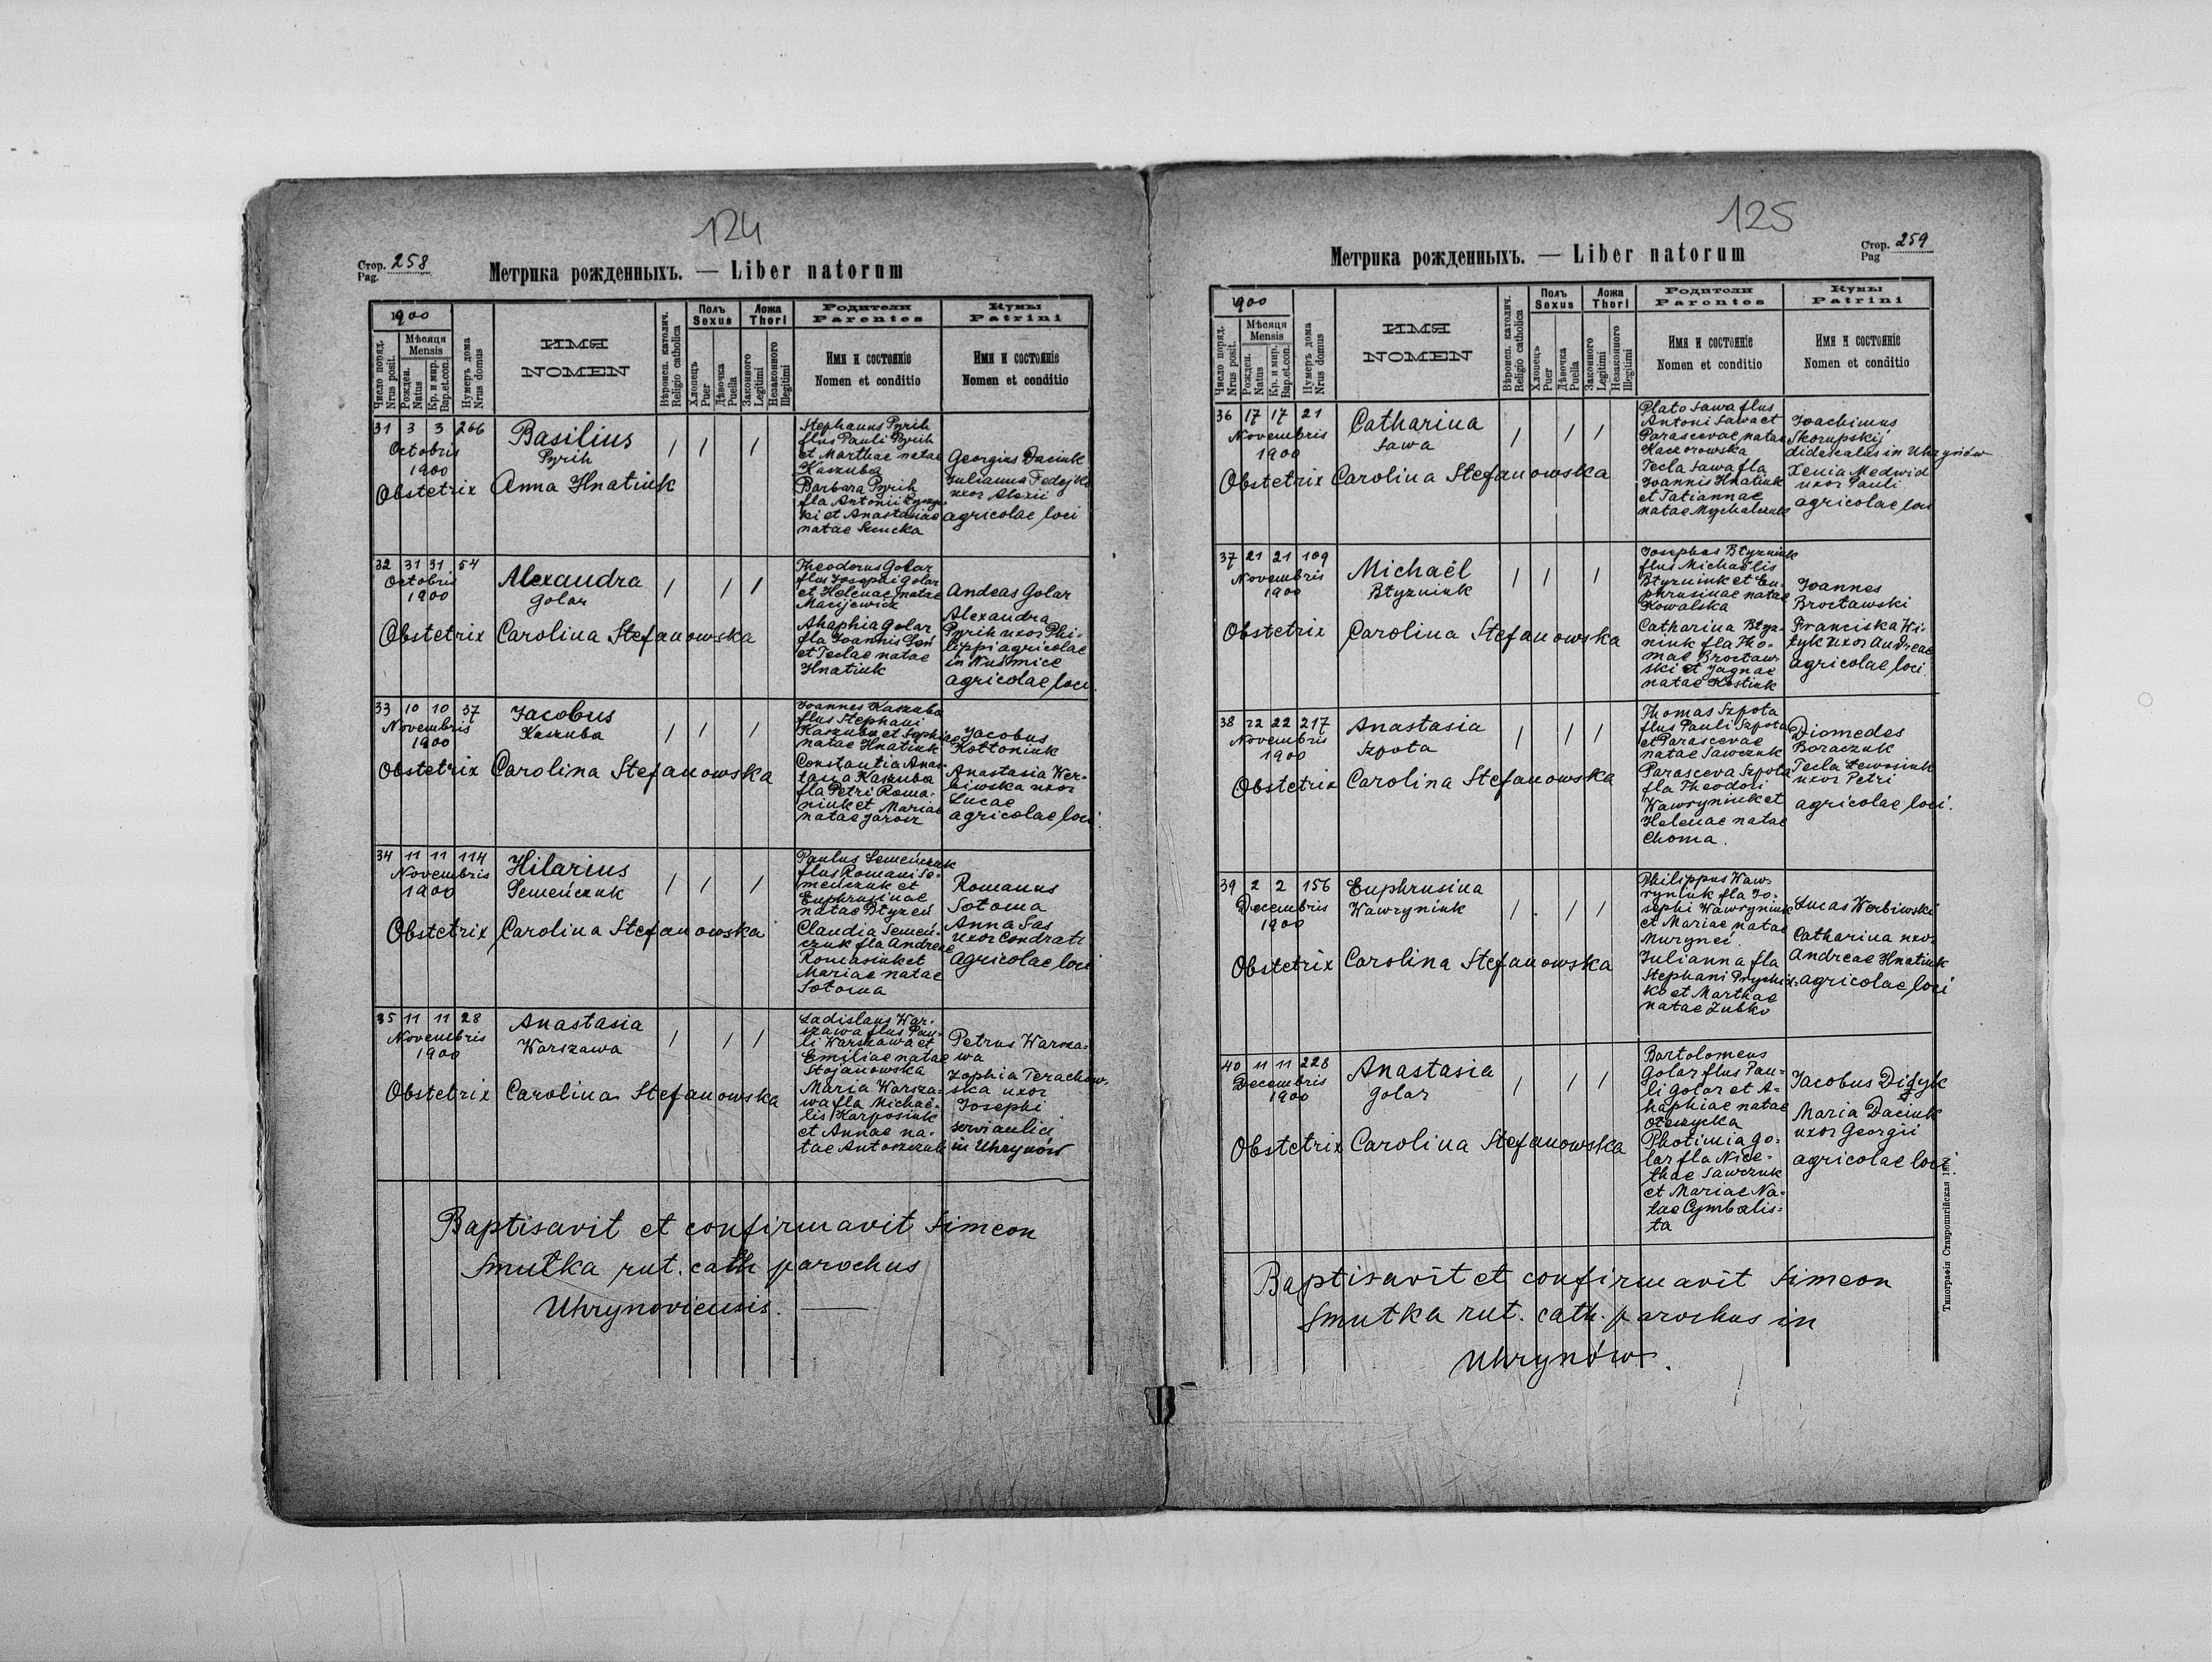 124
Стор. 258
Pag.
Метрика рожденныхъ. — Liber natorum
1900
Число поряд.
Nrus posit.
Мѣсяця
Mensis
Рожден.
Natus
Кр. и мир.
Bap. et. con.
Нумеръ дома
Nrus domus
ИМЯ
NOMEN
Вѣроисп. католич.
Religio catholica
Полъ
Sexus
Хлопецъ
Puer
Дѣвочка
Puella
Ложа
Thori
Законного
Legitimi
Незаконного
Illegitimi
Родители
Parentes
Имя и состояніе
Nomen et conditio
Кумы
Patrini
Имя и состояніе
Nomen et conditio
31 3 3 266
Octobris
1900
Basilius
Pyrih
/ / /
Stephanus Pyrih
flus Pauli Pyrih
et Marthae natae
Kaszuba
Barbara Pyrih
fla Antonii
ki et Anastasiae
natae
Georgius Daciuk
Julianna Fedejko
uxor Alexii
agricolae loci
Obstetrix Anna Hnatiuk
32 31 31 54
Octobris
1900
Alexandra
Golar
/ / /
Theodorus Golar
flus Josephi Golar
et Helenae natae
Macijewicz
Ahaphia Golar
fla Joannis
et Teclae natae
Hnatiuk
Andeas Golar
Alexandra
Pyrih uxor Phi-
lippi agricolae
in Nuśmice
agricolae loci.
Obstetrix Carolina Stefanowska
33 10 10 37
Novembris
1900
Jacobus
Kaszuba
/ / /
Joannes Kaszuba
flus Stephani
Kaszuba et Sophiae
natae Hnatiuk
Constantia Anas-
tasia Kaszuba
fla Petri Roma-
niuk et Mariae
natae Jarosz
Jacobus
Kołtoniuk
Anastasia Wer-
biwska uxor
Lucae
agricolae loci.
Obstetrix Carolina Stefanowska
34 11 11 114
Novembris
1900
Hilarius
Semeńczuk
/ / /
Paulus Semeńczuk
flus Romani Se-
meńczuk et
Euphrusinae
natae Btyzeń
Claudia Semeń-
czuk fla Andreae
Romasiuk et
Mariae natae
Sołoma
Romanus
Sołoma
Anna Sas
uxor Condrati
agricolae loci
Obstetrix Carolina Stefanowska
35 11 11 28
Novembris
1900
Anastasia
Warszawa
/ / /
Ladislaus War-
szawa flus Pau-
li Warszawa et
Emiliae natae
Stojanowska
Maria Warsza-
wa fla Michae-
lis Karposiuk
et Annae na-
tae Antoszczuk
Petrus Warsza-
wa
Zophia Terachow-
ska uxor
Josephi
servi aulici
in Uhrynów
Obstetrix Carolina Stefanowska
Baptisavit et confirmavit Simeon
Smutka rut. cath parochus
Uhrynoviensis.
125
Стор. 259
Pag
Метрика рожденныхъ. — Liber natorum
1900
Число поряд.
Nrus posit.
Мѣсяця
Mensis
Рожден.
Natus
Кр. и мир.
Bap. et. con.
Нумеръ дома
Nrus domus
ИМЯ
NOMEN
Вѣроисп. католич.
Religio catholica
Полъ
Sexus
Хлопецъ
Puer
Дѣвочка
Puella
Ложа
Thori
Законного
Legitimi
Незаконного
Illegitimi
Родители
Parentes
Имя и состояніе
Nomen et conditio
Кумы
Patrini
Имя и состояніе
Nomen et conditio
36 17 17 21
Novembris
1900
Catharina
Sawa
/ / /
Plato Sawa flus
Antoni Sawa et
Parascevae natae
Kaczorowska
Tecla Sawa fla
Joannis Hnatiuk
et Tatiannae
natae Mychalczuk
Joachimus
Skorupskij
didascalus in Uhrynów
Xenia Medwid
uxor Pauli
agricolae loci
Obstetrix Carolina Stefanowska
37 21 21 109
Novembris
1900
Michaël
Btyzniuk
/ / /
Josephus Btyzniuk
flus Michaëlis
Btyzniuk et Eu-
phrusinae natae
Kowalska
Catharina Btyz-
niuk fla Tho-
mae Brocław-
ski et Jagnae
natae Kostiuk
Joannes
Brocławski
Franciska Wi-
tyk uxor Andreae
agricolae loci.
Obstetrix Carolina Stefanowska
38 22 22 217
Novembris
1900
Anastasia
Szpota
/ / /
Thomas Szpota
flus Pauli Szpota
et Parascevae
natae Sawczuk
Parasceva Szpota
fla Theodori
Wawryniuk et
Helenae natae
Choma.
Diomedes
Boraczuk
Tecla Lewosiuk
uxor Petri
agricolae loci.
Obstetrix Carolina Stefanowska
39 2 2 156
Decembris
1900
Euphrusina
Wawryniuk
/ / /
Philippus Waw-
ryniuk fla Jo-
sephi Wawryniuk
et Mariae natae
Muryneć
Julianna fla
Stephani Prychid-
ko et Marthae
natae Zubko
Lucas Werbiwski
Catharina uxor
Andreae Hnatiuk
agricolae loci
Obstetrix Carolina Stefanowska
40 11 11 228
Decembris
1900
Anastasia
Golar
/ / /
Bartolomeus
Golar flus Pau-
li Golar et A-
haphiae natae
Photimia Go-
lar fla Nice-
thae Sawczuk
et Mariae Na-
tae Cymbalis-
ta
Jacobus Didyk
Maria Daciuk
uxor Georgii
agricolae loci.
Obstetrix Carolina Stefanowska
Baptisavit et confirmavit Simeon
Smutka rut. cath. parochus in
Uhrynów.
Типографія Ставропигійская